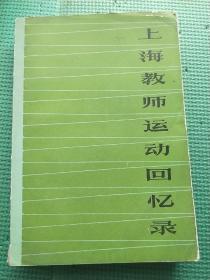 上海教师运动回忆录